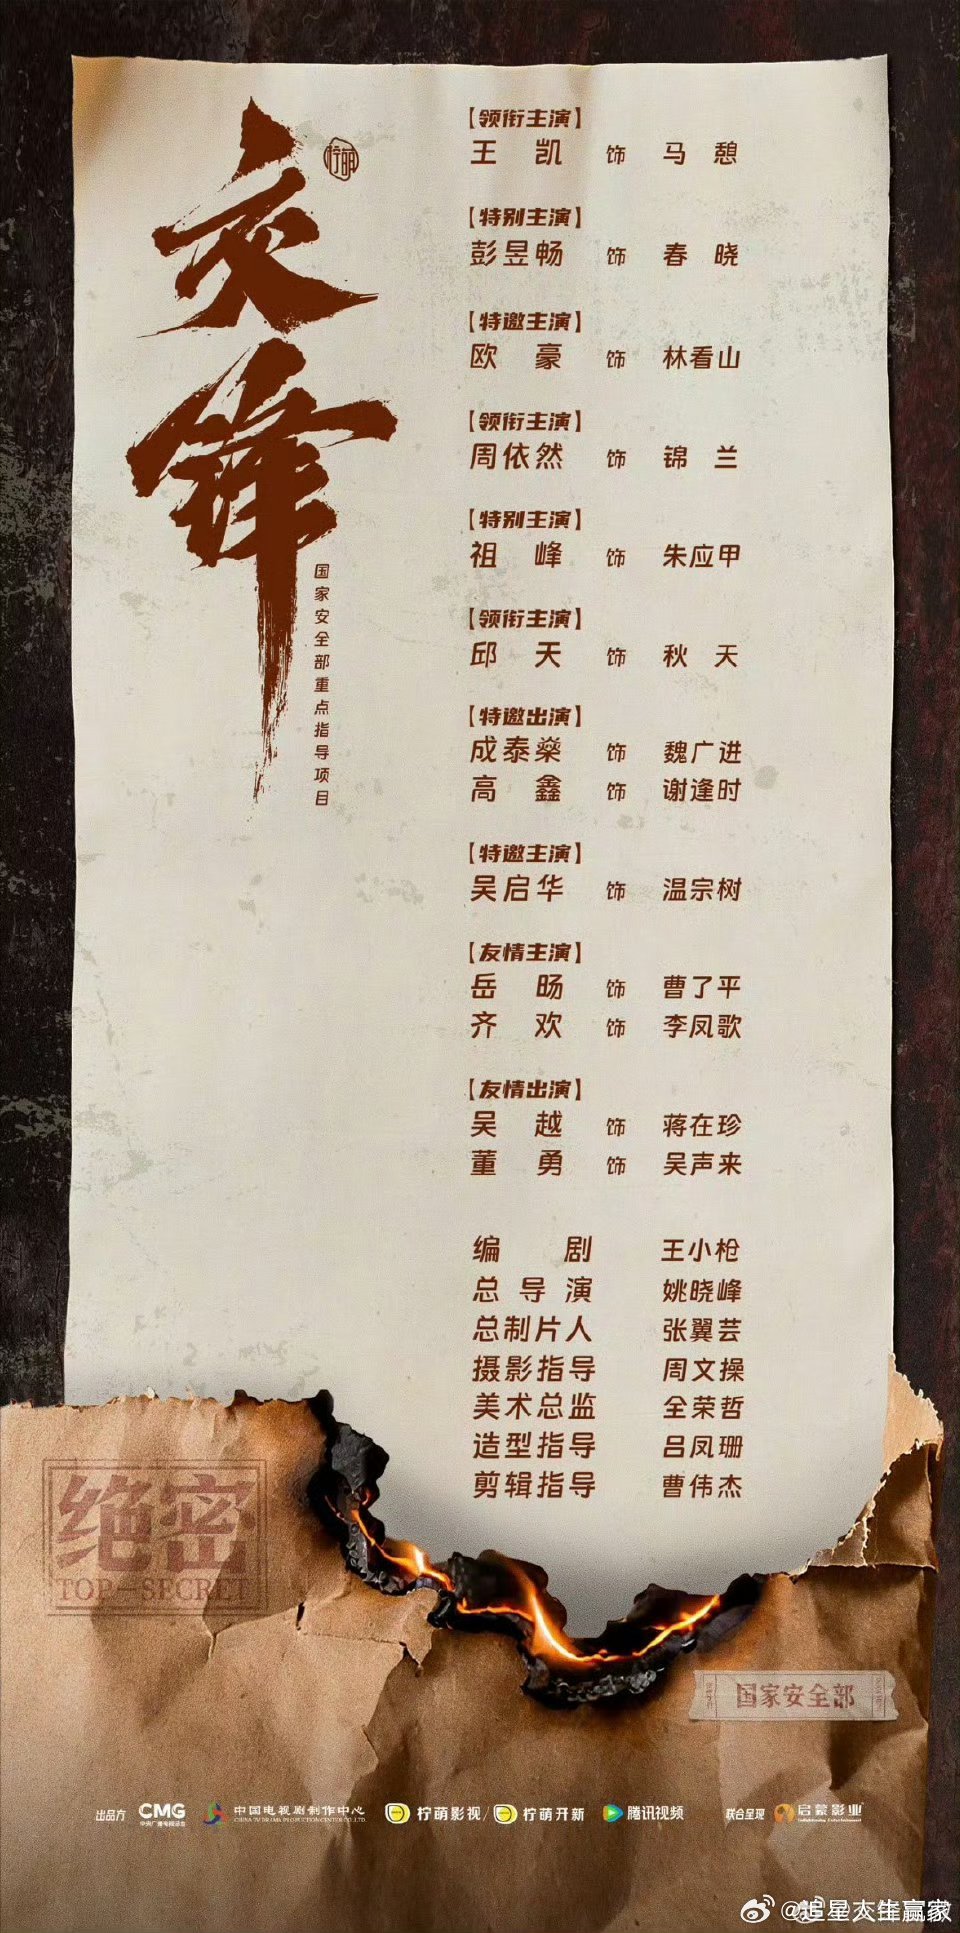 交锋
柠萌
国家安全部重点指导项目
【领衔主演】
王 凯 饰 马 憩
【特别主演】
彭昱畅 饰 春 晓
【特邀主演】
欧 豪 饰 林看山
【领衔主演】
周依然 饰 锦 兰
【特别主演】
祖 峰 饰 朱应甲
【领衔主演】
邱 天 饰 秋 天
【特邀出演】
成泰燊 饰 魏广进
高 鑫 饰 谢逢时
【特邀主演】
吴启华 饰 温宗树
【友情主演】
岳 旸 饰 曹了平
齐 欢 饰 李凤歌
【友情出演】
吴 越 饰 蒋在珍
董 勇 饰 吴声来
编 剧 王小枪
总 导 演 姚晓峰
总制片人 张翼芸
摄影指导 周文操
美术总监 全荣哲
造型指导 吕凤珊
剪辑指导 曹伟杰
绝密
TOP-SECRET
国家安全部
出品方 CMG 中央广播电视总台 中国电视剧制作中心 CHINA TV DRAMA PRODUCTION CENTER CO.,LTD 柠萌影视/柠萌开新 腾讯视频 联合呈现 启蒙影业